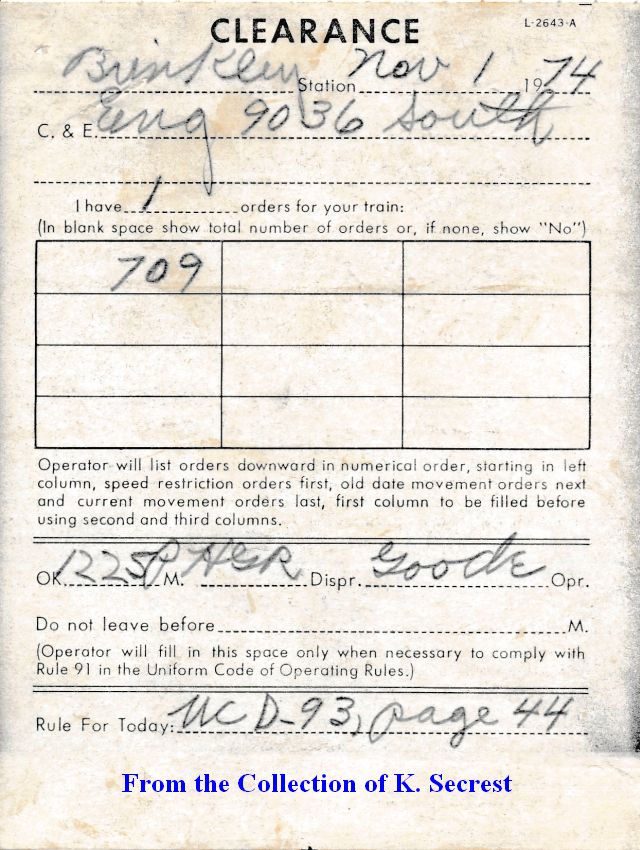 CLEARANCE L-2643-A
Brinkley Station Nov 1 1974
C. & E. Eng 9036 South
I have 1 orders for your train:
(In blank space show total number of orders or, if none, show "No")
709
Operator will list orders downward in numerical order, starting in left
column, speed restriction orders first, old date movement orders next
and current movement orders last, first column to be filled before
using second and third columns.
OK 1225P M. HGR Dispr. Goode Opr.
Do not leave before M.
(Operator will fill in this space only when necessary to comply with
Rule 91 in the Uniform Code of Operating Rules.)
Rule For Today: UC D-93, page 44
From the Collection of K. Secrest